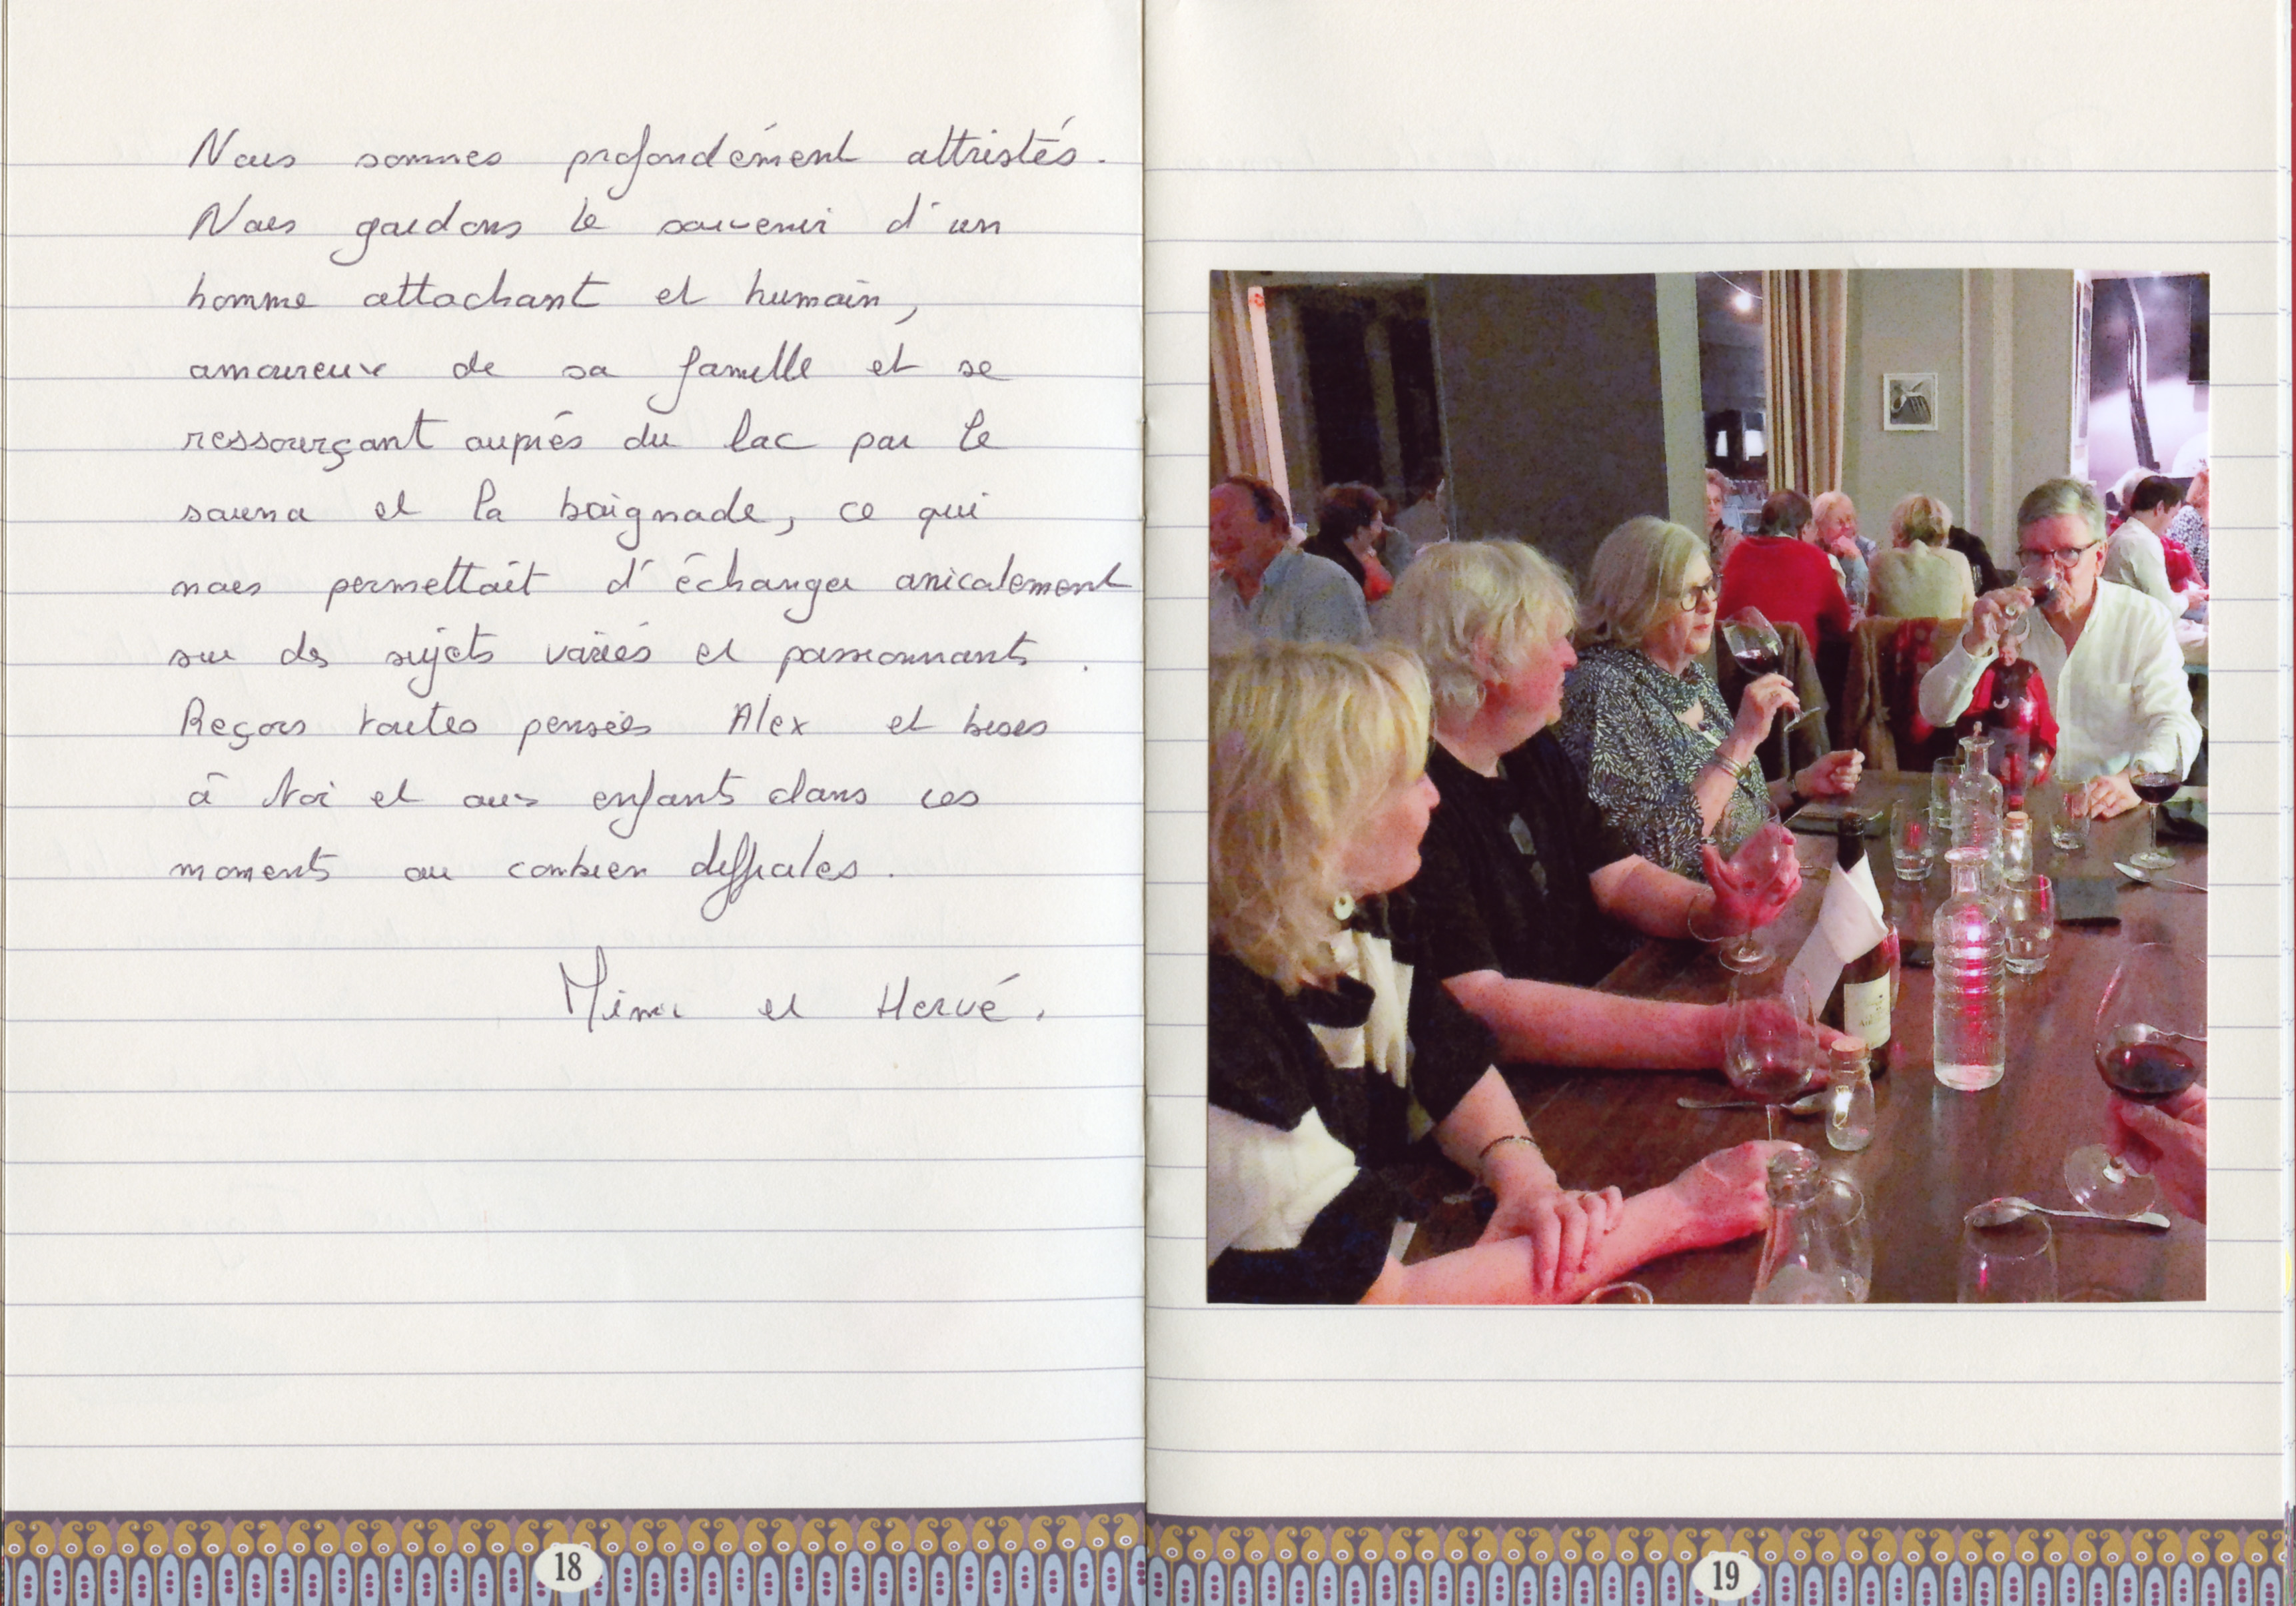 Nous sommes profondément attristés.
Nous gardons le souvenir d'un
homme attachant et humain,
amoureux de sa famille et se
ressourçant auprès du lac par le
sauna et la baignade, ce qui
nous permettait d'échanger amicalement
sur des sujets variés et passionnants.
Reçois toutes pensées Alex et bises
à toi et aux enfants dans ces
moments ou combien difficiles.
Mimi et Hervé.
18
19